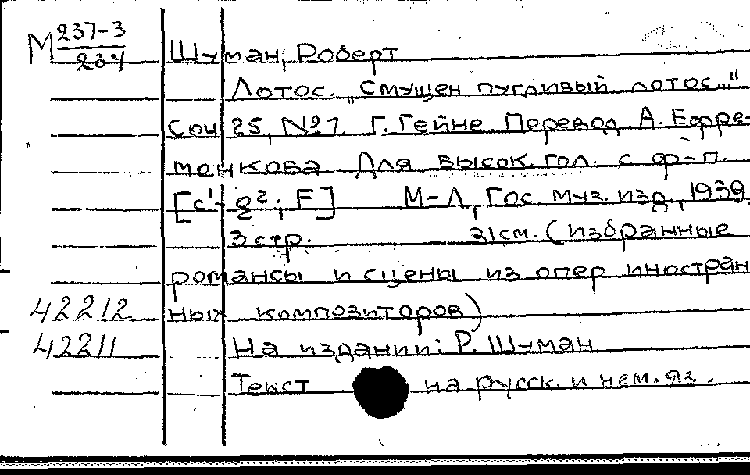 М 237-3
234
Шуман, Роберт
Лотос. "Смущен пугливый лотос..."
Соч 25, №7. Г. Гейне Перевод А. Ефре-
менкова Для высок. гол. с ф-п.
[c¹- g²; F] М-Л, Гос. муз. изд, 1939
3 стр. 31см. (избранные
романсы и сцены из опер иностран
42212 ных композиторов)
42211 На издании: Р. Шуман
Текст на русск. и нем. яз.